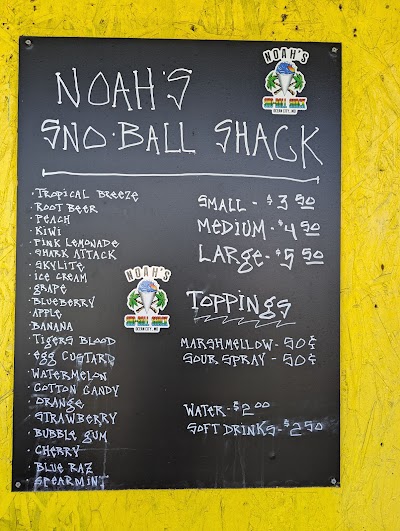 NOAH'S
SNO-BALL SHACK
NOAH'S
SNO-BALL SHACK
OCEAN CITY, MD
· TROPICAL BREEZE
· ROOT BEER
· PEACH
· KIWI
· PINK LEMONADE
· SHARK ATTACK
· SKYLITE
· ICE CREAM
· GRAPE
· BLUEBERRY
· APPLE
· BANANA
· TIGERS BLOOD
· EGG CUSTARD
· WATERMELON
· COTTON CANDY
· ORANGE
· STRAWBERRY
· BUBBLE GUM
· CHERRY
· BLUE RAZ
· SPEARMINT
NOAH'S
SNO-BALL SHACK
OCEAN CITY, MD
SMALL - $3 50
MEDIUM - $4 50
LARGE - $5 50
TOPPINGS
MARSHMELLOW - 50¢
SOUR SPRAY - 50¢
WATER - $2 00
SOFT DRINKS - $2 50